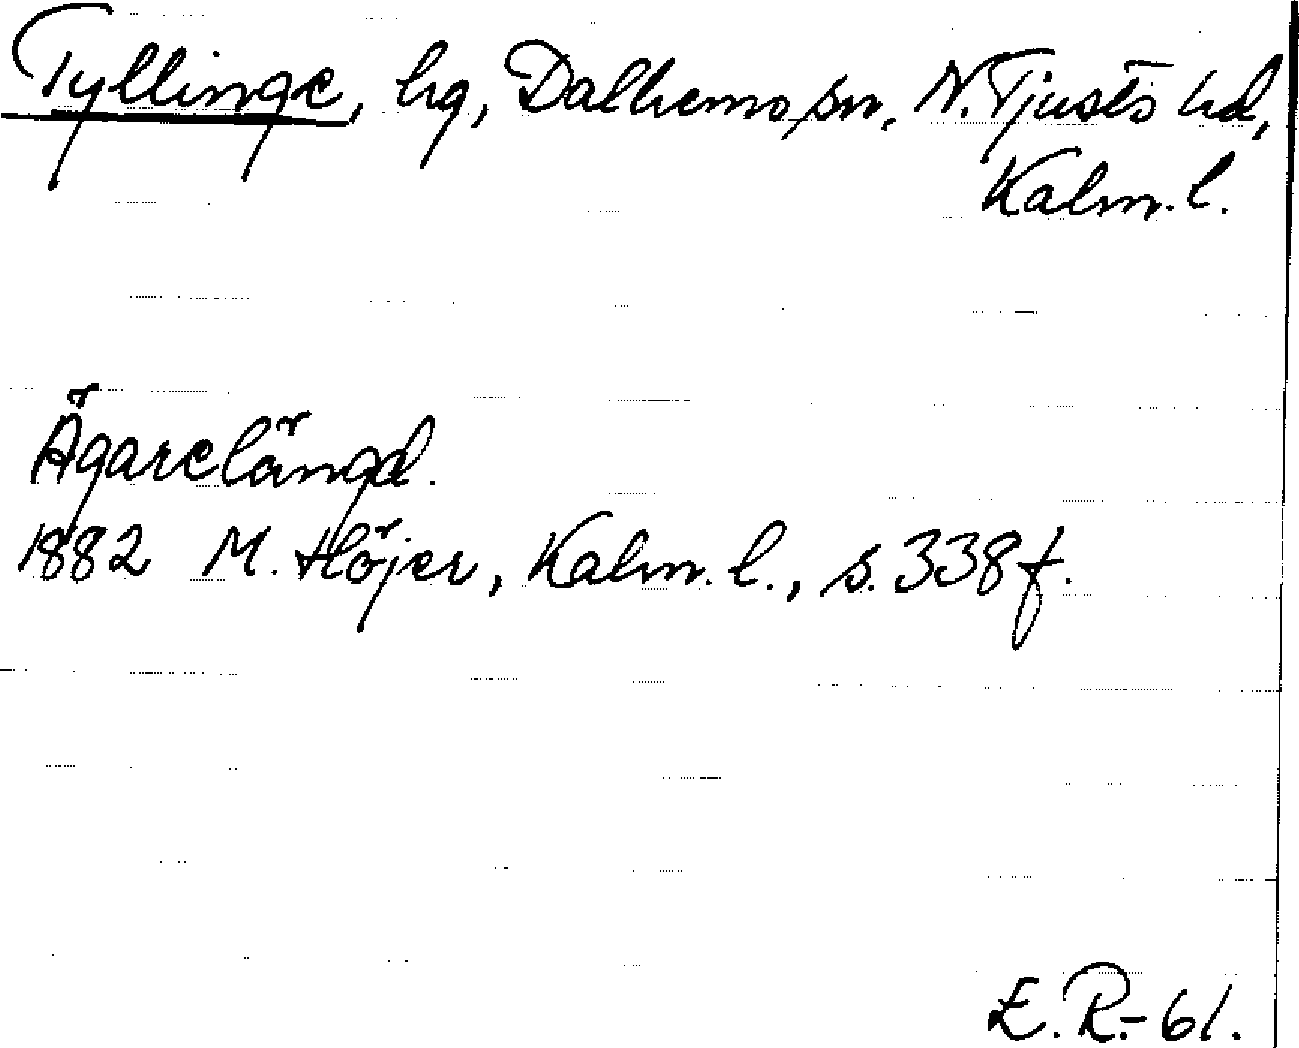 Tyllinge, hg, Dalhems sn, N. Tjusts hd,
Kalm. l.
Ägarelängd.
1882 M. Höjer, Kalm. l., s. 338 f.
E. R.- 61.